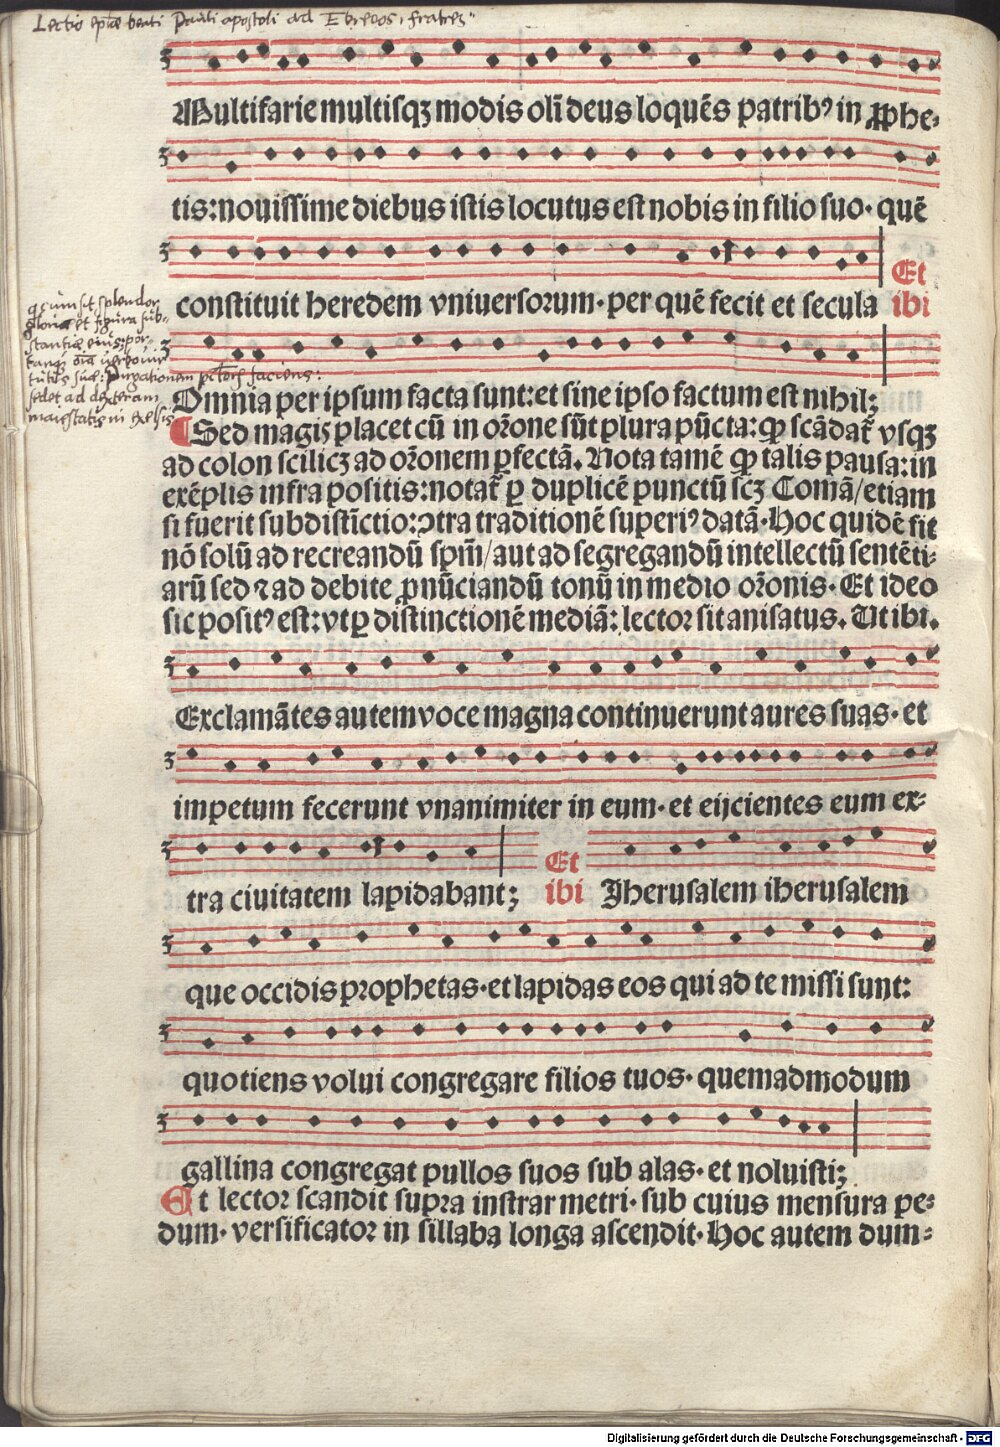 Lectio ep̄tae beati Pauli apostoli ad Ebreos, fratres
Multifarie multiſqꝫ modis olī deus loquēs patribꝰ in ꝓphe⸗
tis: nouiſſime diebus iſtis locutus eſt nobis in filio ſuo· quē
Et
conſtituit heredem vniuerſoꝛum· per quē fecit et ſecula ibi
cum sit splendor
gloriae et figura sub-
stantiae eius: por
tutis suae: Purgationem pctor̄ faciens:
sedet ad dexteram
maiestatis in excelsis
Omnia per ipſum facta ſunt: et ſine ipſo factum eſt nihil;
¶ Sed magis placet cū in oꝛone ſūt plura pūcta: ꝙ ſcādat᷑ vſqꝫ
ad colon ſcilicꝫ ad oꝛonem ꝑfectā. Nota tamē ꝙ talis pauſa: in
exēplis infra poſitis: notat᷑ ꝑ duplicē punctū ſcꝫ Comā/ etiam
ſi fuerit ſubdiſtīctio: ↄtra traditionē ſuperiꝰ datā· Hoc quidē ſit
nō ſolū ad recreandū ſpm̄/ aut ad ſegregandū intellectū ſentēti⸗
arū ſed ⁊ ad debite ꝓnūciandū tonū in medio oꝛonis· Et ideo
ſic poſitꝰ eſt: vt ꝑ diſtinctionē mediā: lectoꝛ ſit aniſatus. Ut ibi.
Exclamātes autem voce magna continuerunt aures ſuas· et
impetum fecerunt vnanimiter in eum· et eijcientes eum ex⸗
Et
tra ciuitatem lapidabant; ibi Jheruſalem iheruſalem
que occidis prophetas· et lapidas eos qui ad te miſſi ſunt:
quotiens volui congregare filios tuos· quemadmodum
gallina congregat pullos ſuos ſub alas· et noluiſti;
Et lectoꝛ ſcandit ſupra inſtrar metri· ſub cuius menſura pe⸗
dum· verſificatoꝛ in ſillaba longa aſcendit· Hoc autem dum⸗
Digitalisierung gefördert durch die Deutsche Forschungsgemeinschaft - DFG